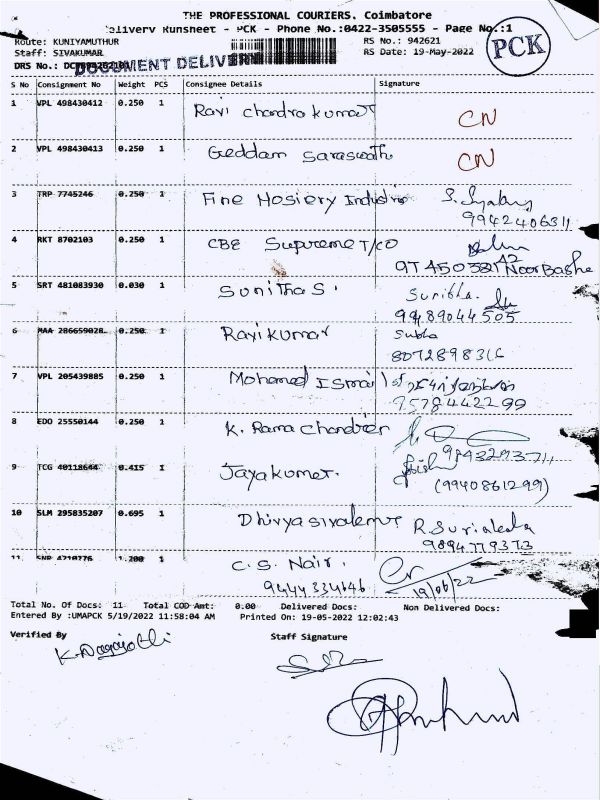 THE PROFESSIONAL COURIERS. Coimbatore
Delivery Runsheet - PCK - Phone No.:0422-3505555 - Page No.:1
Route: KUNIYAMUTHUR
RS No.: 942621
Staff: SIVAKUMAR
RS Date: 19-May-2022
PCK
DRS No.:
DOCUMENT DELIVERY
S No Consignment No Weight PCS Consignee Details Signature
1 VPL 498430412 0.250 1 Ravi chandra kumar CN
2 VPL 498430413 0.250 1 Geddam Saraswath CN
3 TRP 7745246 0.250 1 Fine Hosiery Industries
9942406311
4 RKT 8702103 0.250 1 CBE Supreme T/CO
Noor Basha
5 SRT 481083930 0.030 1 Sunitha S.
9489044505
6 MAA 286659028 0.250 1 Ravikumar Subha
8072898316
7 VPL 205439885 0.250 1 Mohamed Ismail
9578442299
8 EDO 25550144 0.250 1 K. Rama Chandrer
9843293711
9 TCG 40118644 0.415 1 Jayakumar.
(9940861299)
10 SLM 295835207 0.695 1 Dhivyasivakumar
9894779373
11 SNR 4710776 1.200 1 C.S. Nair.
9444334646 19/06/22
Total No. Of Docs: 11 Total COD Amt: 0.00 Delivered Docs: Non Delivered Docs:
Entered By :UMAPCK 5/19/2022 11:58:04 AM Printed On: 19-05-2022 12:02:43
Verified By Staff Signature